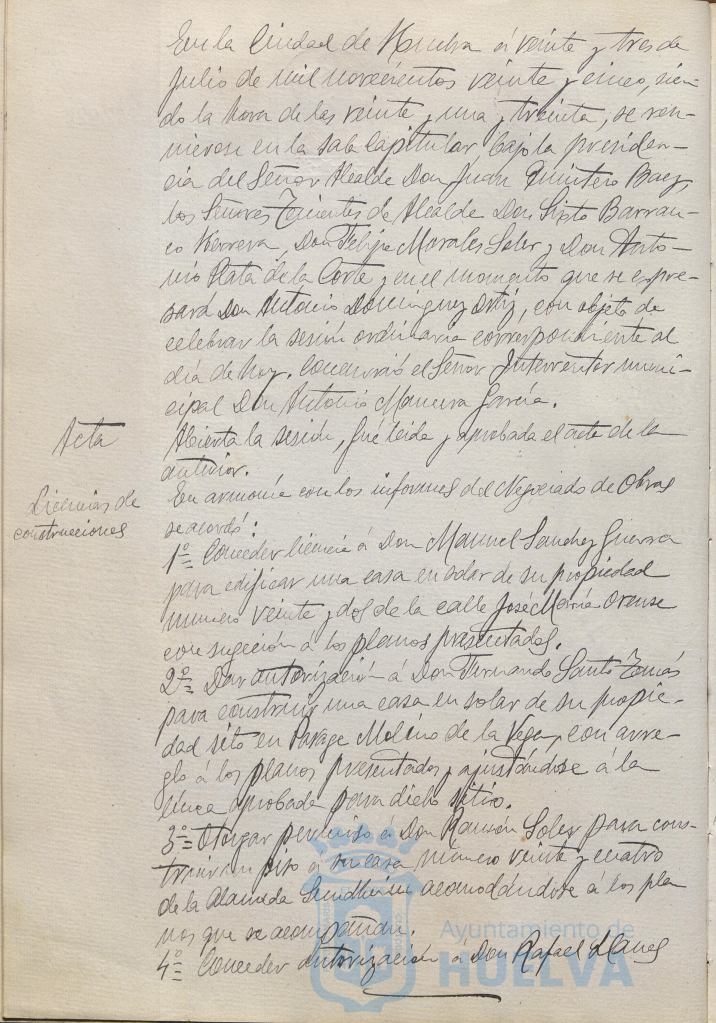 En la Ciudad de Huelva á veinte y tres de
Julio de mil novecientos veinte y cinco, sien-
do la hora de las veinte y una y treinta, se reu-
nieron en la sala Capitular, bajo la presiden-
cia del Señor Alcalde Don Juan Quintero Baez,
los Señores Tenientes de Alcalde Don Sixto Barran-
co Herrera, Don Felipe Morales Soler y Don Anto-
nio Plata de la Corte y en el momento que se expre-
sará Don Antonio Dominguez Ortiz, con objeto de
celebrar la sesión ordinaria correspondiente al
día de hoy. Concurrió el Señor Interventor muni-
cipal Don Antonio Manuva García.
Acta
Abierta la sesión, fué leida y aprobada el acta de la
anterior.
Licencias de
construcciones
En armonía con los informes del Negociado de Obras
se acordó:
1º= Conceder licencia á Don Manuel Sanchez Guerra
para edificar una casa en solar de su propiedad
número veinte y dos de la calle José María Orense
con sugeción á los planos presentados.
2º= Dar autorización á Don Fernando Santo Tomás
para construir una casa en solar de su propie-
dad sito en Parage Molino de la Vega, con arre-
glo á los planos presentados y ajustándose á la
línea aprobada para dicho sitio.
3º= Otorgar permiso á Don Ramón Soler para cons-
truir un piso á su casa número veinte y cuatro
de la Alameda Sundheim acomodándose á los pla
nos que se acompañan.
4º= Conceder autorización á Don Rafael Llanes
Ayuntamiento de
HUELVA